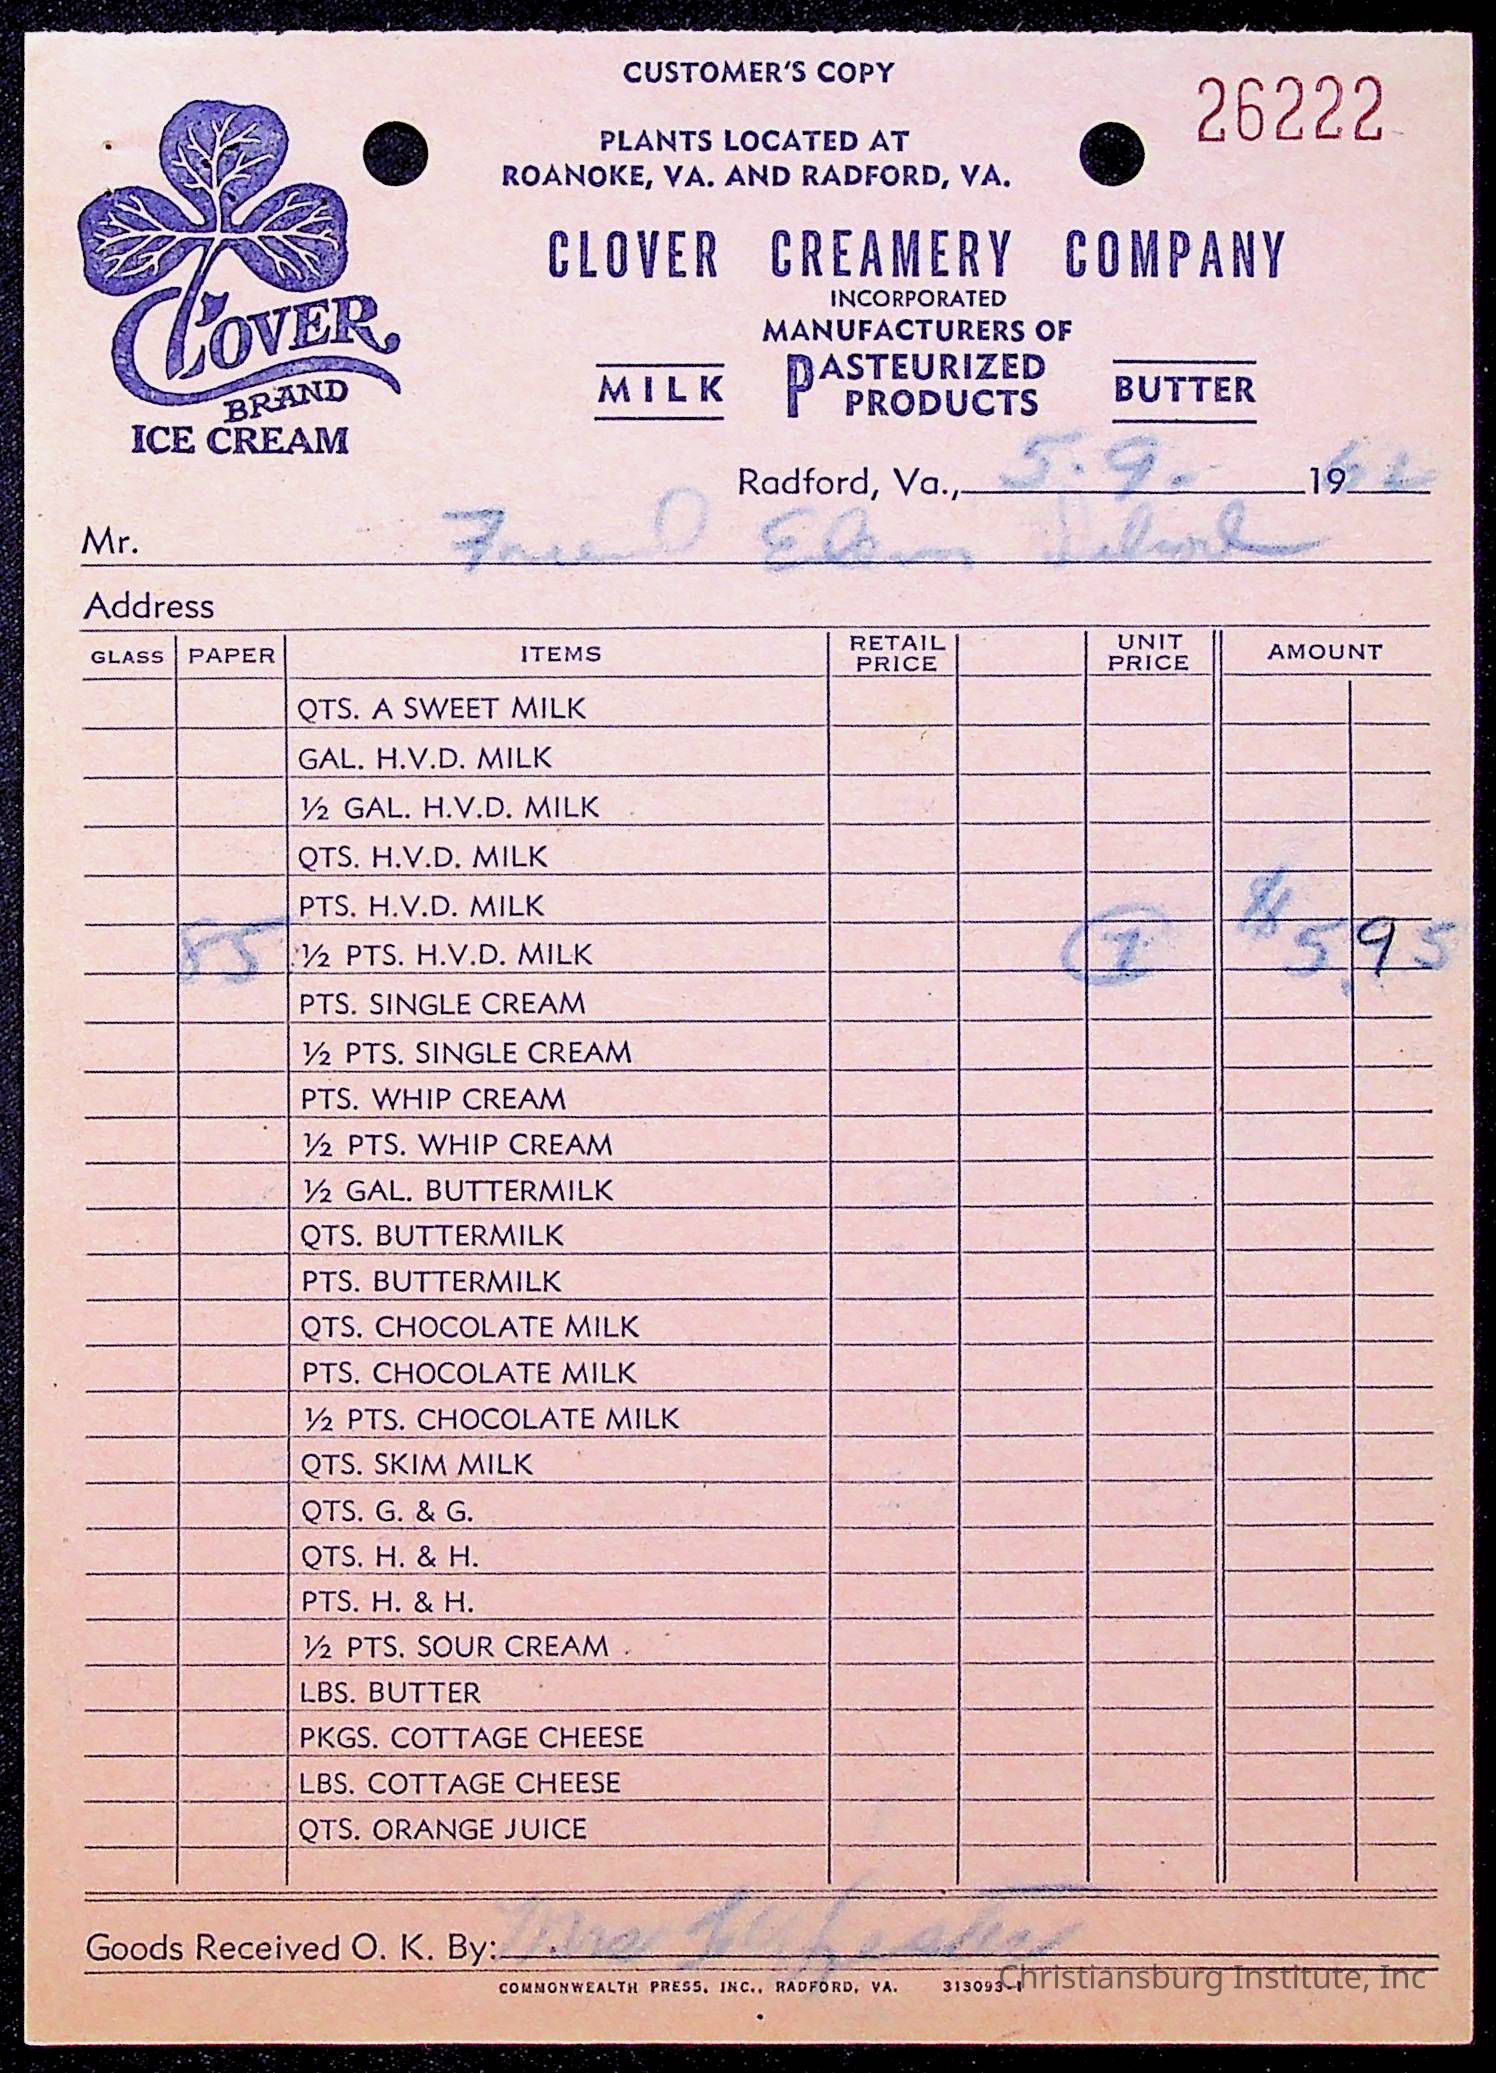 CUSTOMER'S COPY
26222
PLANTS LOCATED AT
ROANOKE, VA. AND RADFORD, VA.
CLOVER CREAMERY COMPANY
INCORPORATED
MANUFACTURERS OF
MILK PASTEURIZED PRODUCTS BUTTER
CLOVER
BRAND
ICE CREAM
Radford, Va., 5.9. 1962
Mr. Friend Elem School
Address
GLASS PAPER ITEMS RETAIL PRICE UNIT PRICE AMOUNT
QTS. A SWEET MILK
GAL. H.V.D. MILK
½ GAL. H.V.D. MILK
QTS. H.V.D. MILK
PTS. H.V.D. MILK
85 ½ PTS. H.V.D. MILK 7 $5.95
PTS. SINGLE CREAM
½ PTS. SINGLE CREAM
PTS. WHIP CREAM
½ PTS. WHIP CREAM
½ GAL. BUTTERMILK
QTS. BUTTERMILK
PTS. BUTTERMILK
QTS. CHOCOLATE MILK
PTS. CHOCOLATE MILK
½ PTS. CHOCOLATE MILK
QTS. SKIM MILK
QTS. G. & G.
QTS. H. & H.
PTS. H. & H.
½ PTS. SOUR CREAM
LBS. BUTTER
PKGS. COTTAGE CHEESE
LBS. COTTAGE CHEESE
QTS. ORANGE JUICE
Goods Received O. K. By: Mrs
COMMONWEALTH PRESS, INC., RADFORD, VA. 313093-1
Christiansburg Institute, Inc